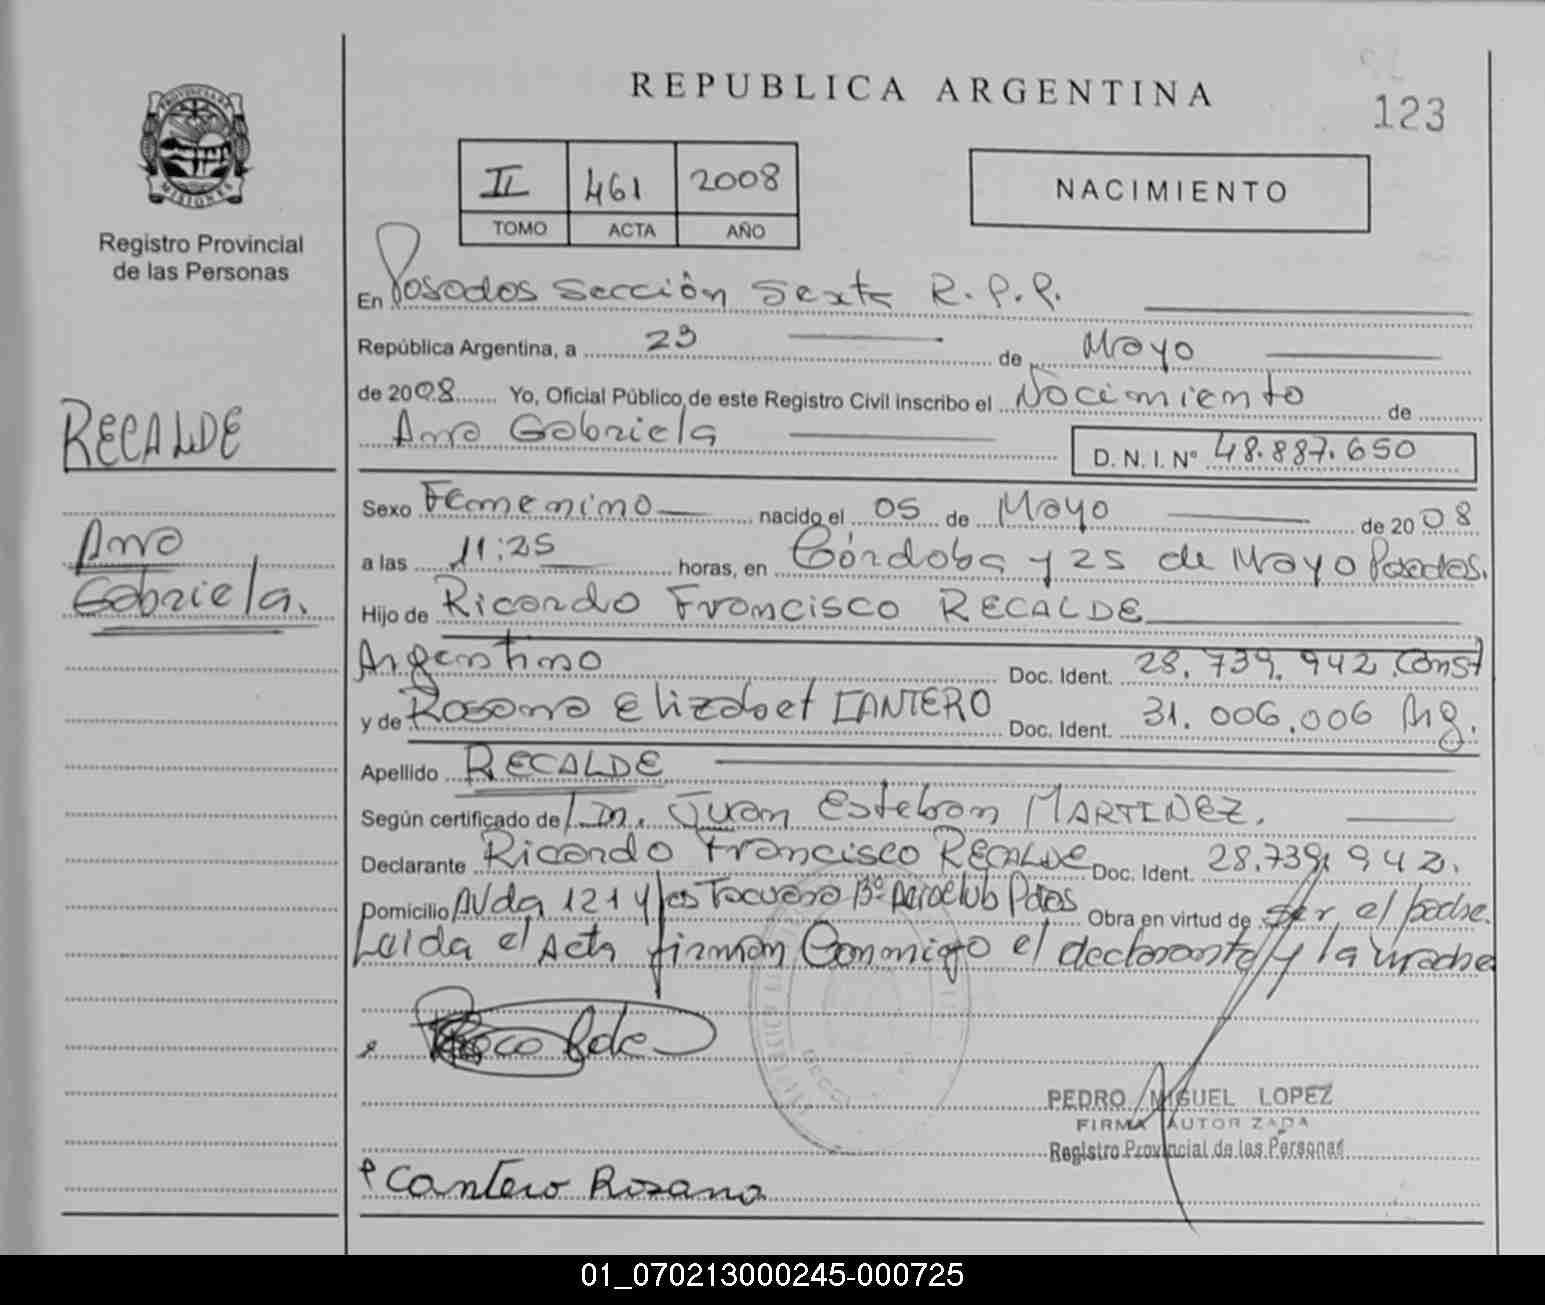 REPUBLICA ARGENTINA
123
II 461 2008
TOMO ACTA AÑO
NACIMIENTO
PROVINCIA DE MISIONES
Registro Provincial
de las Personas
RECALDE
Ana
Gabriela.
En Posadas Sección Sexta R.P.P.
República Argentina, a 23 de Mayo
de 2008 Yo, Oficial Público de este Registro Civil inscribo el Nacimiento de
Ana Gabriela D.N.I. Nº 48.887.650
Sexo Femenino nacido el 05 de Mayo de 2008
a las 11:25 horas, en Córdoba y 25 de Mayo Posadas.
Hijo de Ricardo Francisco RECALDE
Argentino Doc. Ident. 28.739.942 Const
y de Rosana Elizabet CANTERO Doc. Ident. 31.006.006 Arg.
Apellido RECALDE
Según certificado de Dr. Juan Esteban MARTINEZ.
Declarante Ricardo Francisco RECALDE Doc. Ident. 28.739.942.
Domicilio AVda 121 y Bº Aeroclub Pdas Obra en virtud de ser el padre.
Leida el Acta firman Conmigo el declarante y la madre
Recalde
PEDRO MIGUEL LOPEZ
FIRMA AUTORIZADA
Registro Provincial de las Personas
Cantero Rosana
01_070213000245-000725